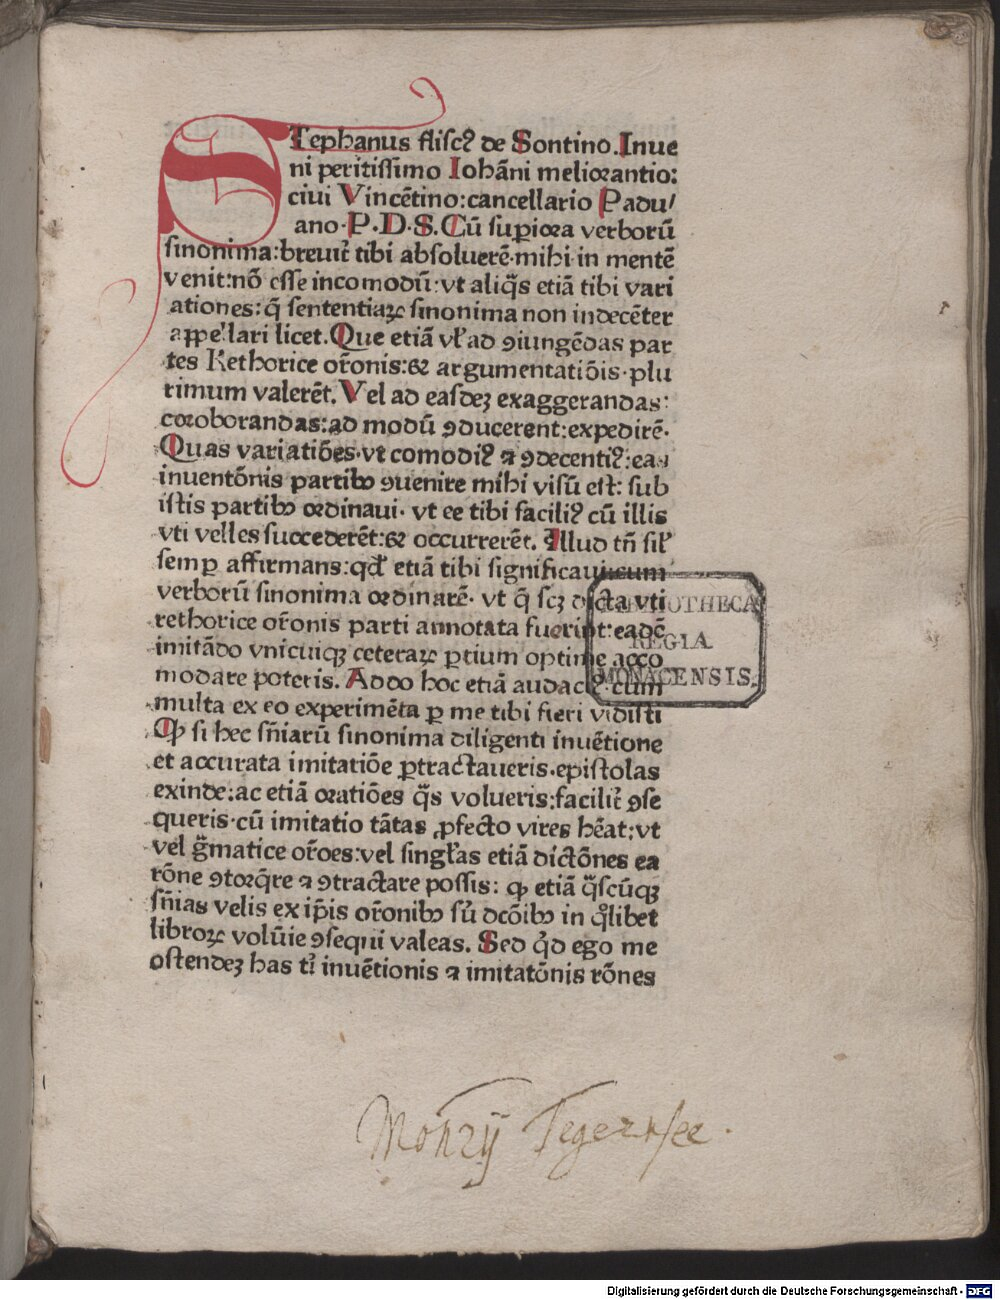 STephanus fliscꝰ de Sontino. Inue
ni peritissimo Iohãni meliorantio:
ciui Vincẽtino: cancellario Padu/
ano. P. D. S. Cũ supiora verborũ
sinonima: breuiť tibi absoluerẽ. mihi in mentẽ
venit: nõ esse incomodũ: vt aliq̃s etiã tibi vari
ationes: q̃ sententiaꝝ sinonima non indecẽter
appellari licet. Que etiã vl̓ ad ꝯiungẽdas par
tes Rethorice or̃onis: & argumentatiõis. plu
rimum valerẽt. Vel ad easdeꝫ exaggerandas:
coroborandas: ad modũ ꝯducerent: expedirẽ.
Quas variatiões. vt comodiꝰ ⁊ ꝯdecentiꝰ: eaꝝ
inuentõnis partibꝫ ꝯuenire mihi visũ est: sub
istis partibꝫ ordinaui. vt ee tibi faciliꝰ cũ illis
vti velles succederẽt: & occurrerẽt. Illud tñ sil̓
semꝑ affirmans: qd̓ etiã tibi significaui: cum
verborũ sinonima ordinarẽ. vt q̃ scꝫ dicta vti
rethorice or̃onis parti annotata fuerint: eadẽ
imitãdo vnicuiqꝫ ceteraꝝ ꝑtium optime acco
modare poteris. Addo hoc etiã audaciꝰ. cum
multa ex eo experimẽta ꝑ me tibi fieri vidisti
Ꝙ si hec sñiarũ sinonima diligenti inuẽtione
et accurata imitatiõe ꝑtractaueris. epistolas
exinde: ac etiã oratiões q̃s volueris: faciliť ꝯse
queris. cũ imitatio tãtas ꝓfecto vires hẽat: vt
vel g̃matice or̃oes: vel singl̓as etiã dictõnes ea
rõne ꝯtorq̃re ⁊ ꝯtractare possis: ꝙ etiã q̃scũqꝫ
sñias velis ex ip̃is or̃onibꝫ siue dcõibꝫ in qͦlibet
libroꝝ volũie ꝯsequi valeas. Sed qd̓ ego me
ostendeꝫ has tibi inuẽtionis ⁊ imitatõnis rões
BIBLIOTHECA
REGIA
MONACENSIS.
Monrij Tegernsee.
Digitalisierung gefördert durch die Deutsche Forschungsgemeinschaft - DFG